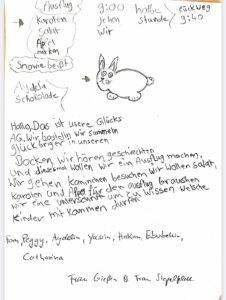 Ausflug
Karoten
salat
Apfel
merken
Snowie beißt
Aydelia
Schokolade
9:00 halbe
jehen stunde
Wir
rückweg
9:40
Hallo, Das ist usere Glücks
AG. Wir bosteln Wir sammeln
glückbriger in unseren
Docken Wir hören geschischten
und diesesmal Wollen Wir ein Ausflug machen,
Wir gehen Kaninchen besuchen Wir Wollen Salat,
Karoten und Apfel Für den ausflug brauchen
wir eine unterschrift um zu wissen Welsche
Kinder mit kommen dürfen
From, Peggy, Aydelia, Yasin, Hakan, Ebubekir,
Catharina
Frau Gießen & Frau